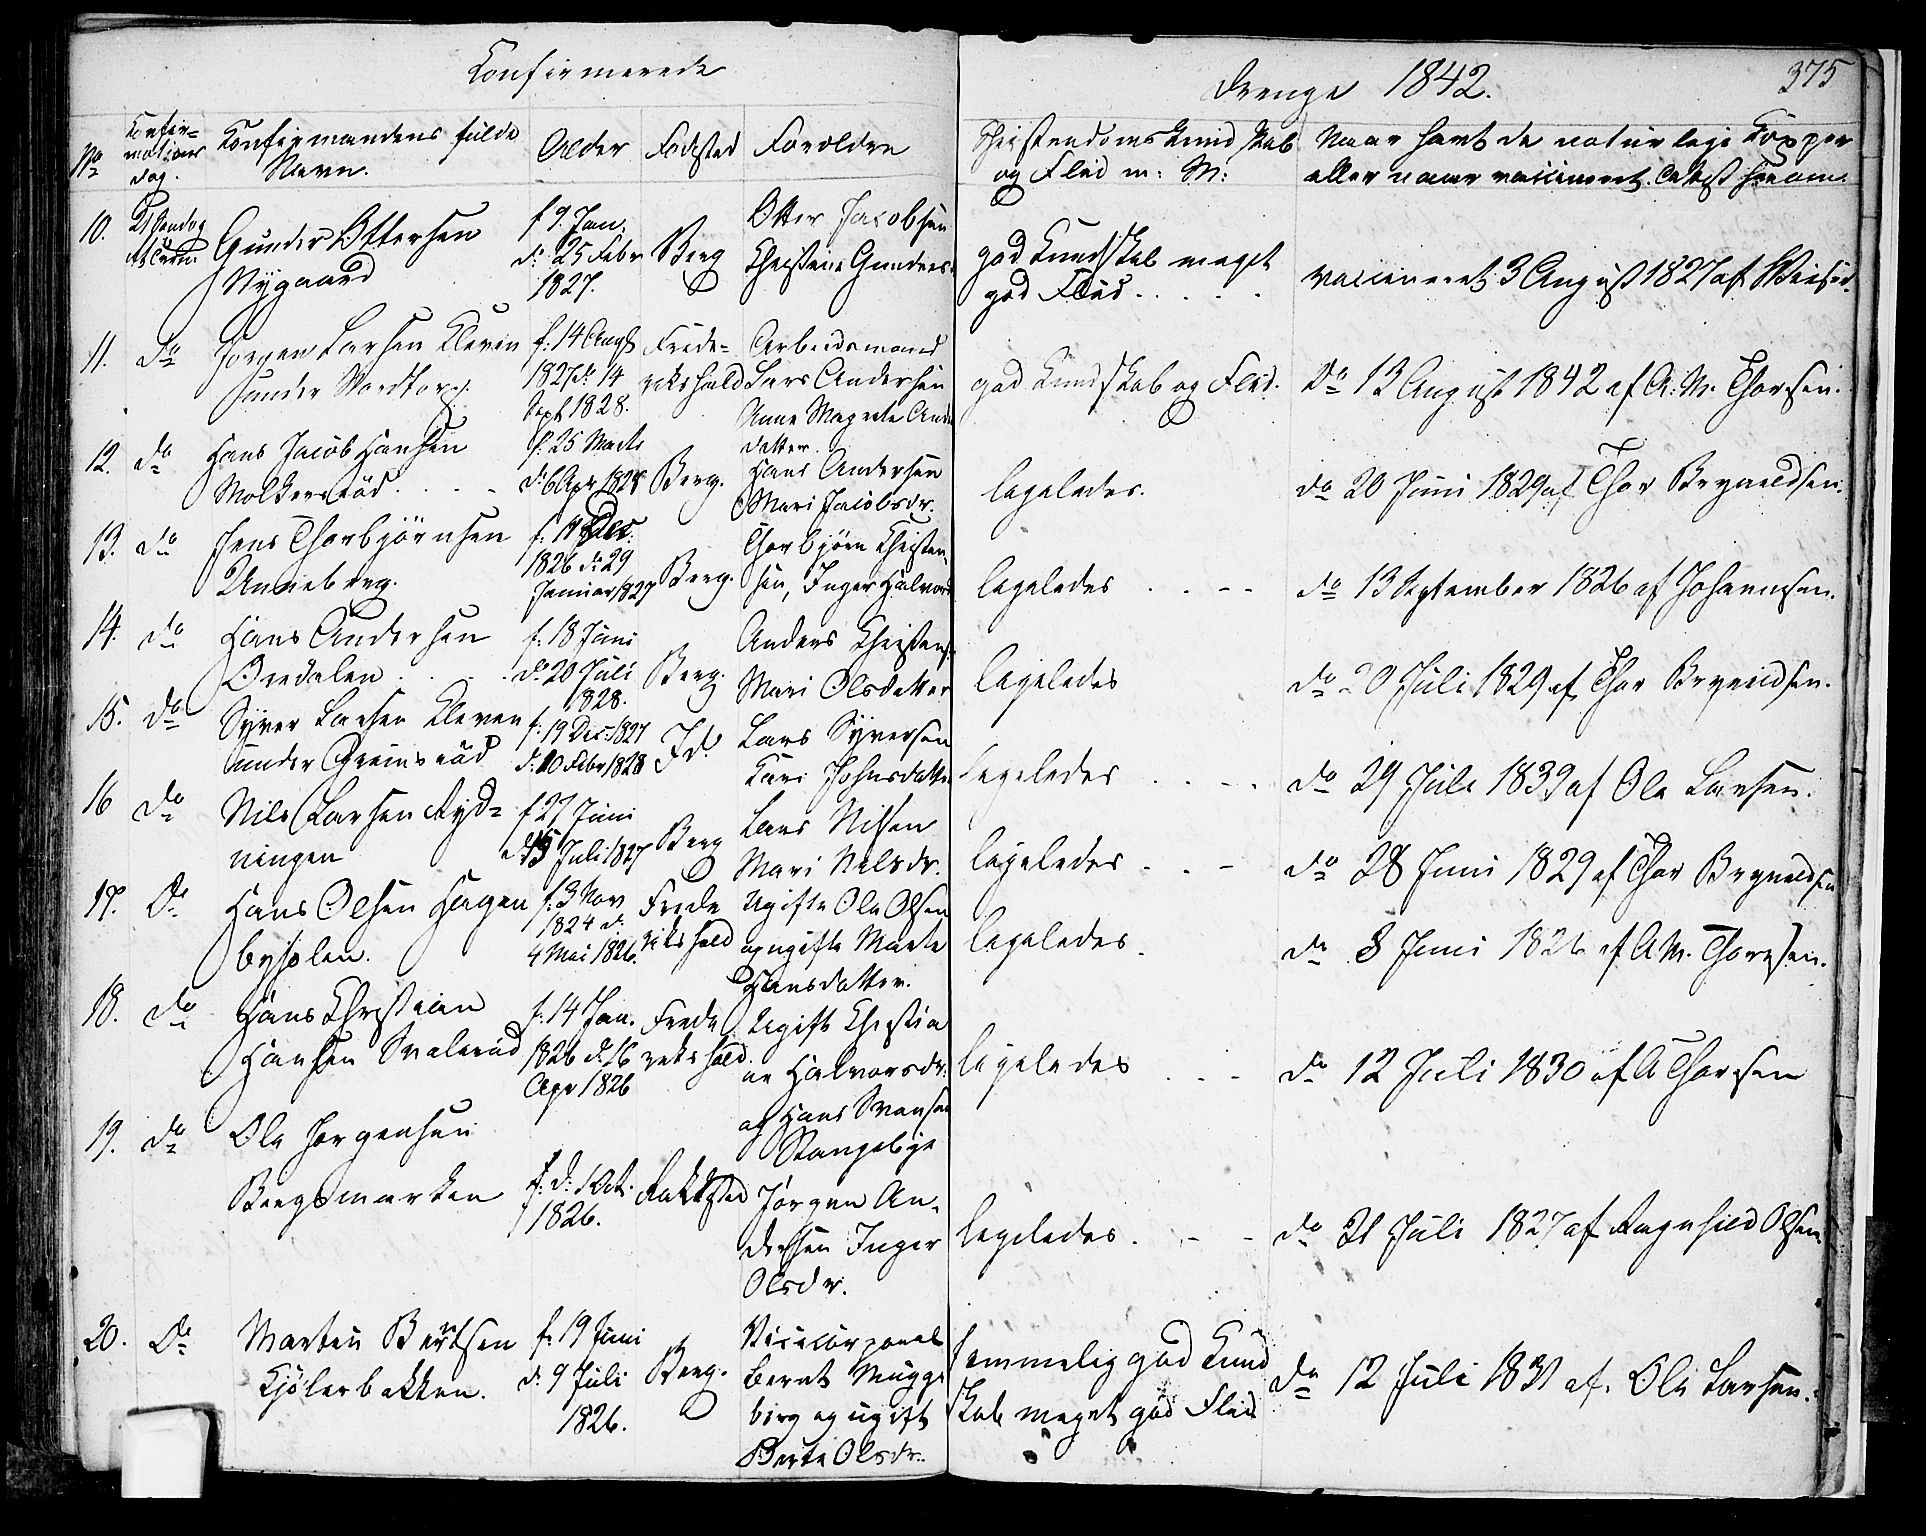 Konfirmerede
Drenge 1842.
375
No
Konfir=
mations
dag.
Konfirmandens fulde
Navn.
Alder
Fødested
Forældre
Christendoms Kundskab
og Flid m: M:
Naar havt de naturlige Kopper
eller naar vaccineret. Attest herom.
10.
21 Søndag
Gunder Ottersen
Nygaard
f 9. Jan:
d: 25 Febr
1827.
Berg
Otter Jacobsen
Christine Gunders
god Kundskab meget
god Flid.
vaccineret 3 August 1827 af
11.
do
Jørgen Larsen Kleven
under
f: 14 Augst
1827 d: 14
Sept 1828.
Frede=
rikshald
Arbeidsmand
Lars Andersen
Anne Magrete Ande
datter.
god Kundskab og Flid.
do 13 August 1842 af A. M. Thoresen.
12.
do
Hans Jacob Hansen
Molkerød.
f: 25 Marts
d: 6 Apr 1828
Berg.
Hans Andersen
Mari Jacobsdr.
ligeledes.
do 20 Juni 1829 af Thor Bryneldsen.
13.
do
Jens Thorbjørnsen
Unneberg.
f: 18 Dec:
1826 d: 29
Januar 1827
Berg.
Thorbjørn Christen
sen, Inger Halvors
ligeledes
do 13 September 1826 af Johannesen.
14.
do
Hans Andersen
Ovedalen
f: 18 Juni
d: 20 Juli
1828.
Berg.
Anders Christens.
Mari Olsdatter
ligeledes
do 20 Juli 1829 af Thor Bryneldsen.
15.
do
Syver Larsen Kleven
under Grimsrød
f: 19 Dec: 1827
d: 10 Febr 1828
Id.
Lars Syversen
Kari Johnsdatter
ligeledes
do 29 Juli 1839 af Ole Larsen.
16
do
Nils Larsen Ryd=
ningen
f 27 Juni
d 15 Juli 1827
Berg
Lars Nilsen
Mari Nilsdr.
ligeledes
do 28 Juni 1829 af Thor Bryneldsen
17.
do
Hans Olsen Hagen
f: 3 Nov
1824 d:
4 Mai 1826.
Frede
rikshald
Ugifte Ole Olsen
og ugifte Marte
Hansdatter.
ligeledes.
do 8 Juni 1826 af A. M. Thoresen.
18.
do
Hans Christian
Hansen Svalerød
f: 14 Jan.
1826 d. 16
Apr 1826
Frede
rikshald
Ugift Christia
ne Halvorsdr.
af Hans Svensen
Stangebye
ligeledes
do 12 Juli 1830 af A Thoresen
19.
do
Ole Jørgensen
Bergsmarken
f: d: 1 Oct.
1826.
Rakkestad
Jørgen An-
dersen Inger
Olsdr.
ligeledes.
do 21 Juli 1827 af Ragnhild Olsen
20.
do
Martin Berntsen
Kjølerbakken.
f: 19 Juni
d: 9 Juli
1826.
Berg.
Vicecorporal
Bernt Mugge
borg og ugift
Berte Olsdr.
temmelig god Kund
skab meget god Flid
do 12 Juli 1831 af. Ole Larsen.